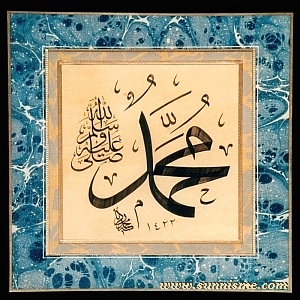 محمد
صلى الله عليه وسلم
١٤٢٢
www.sunnisme.com